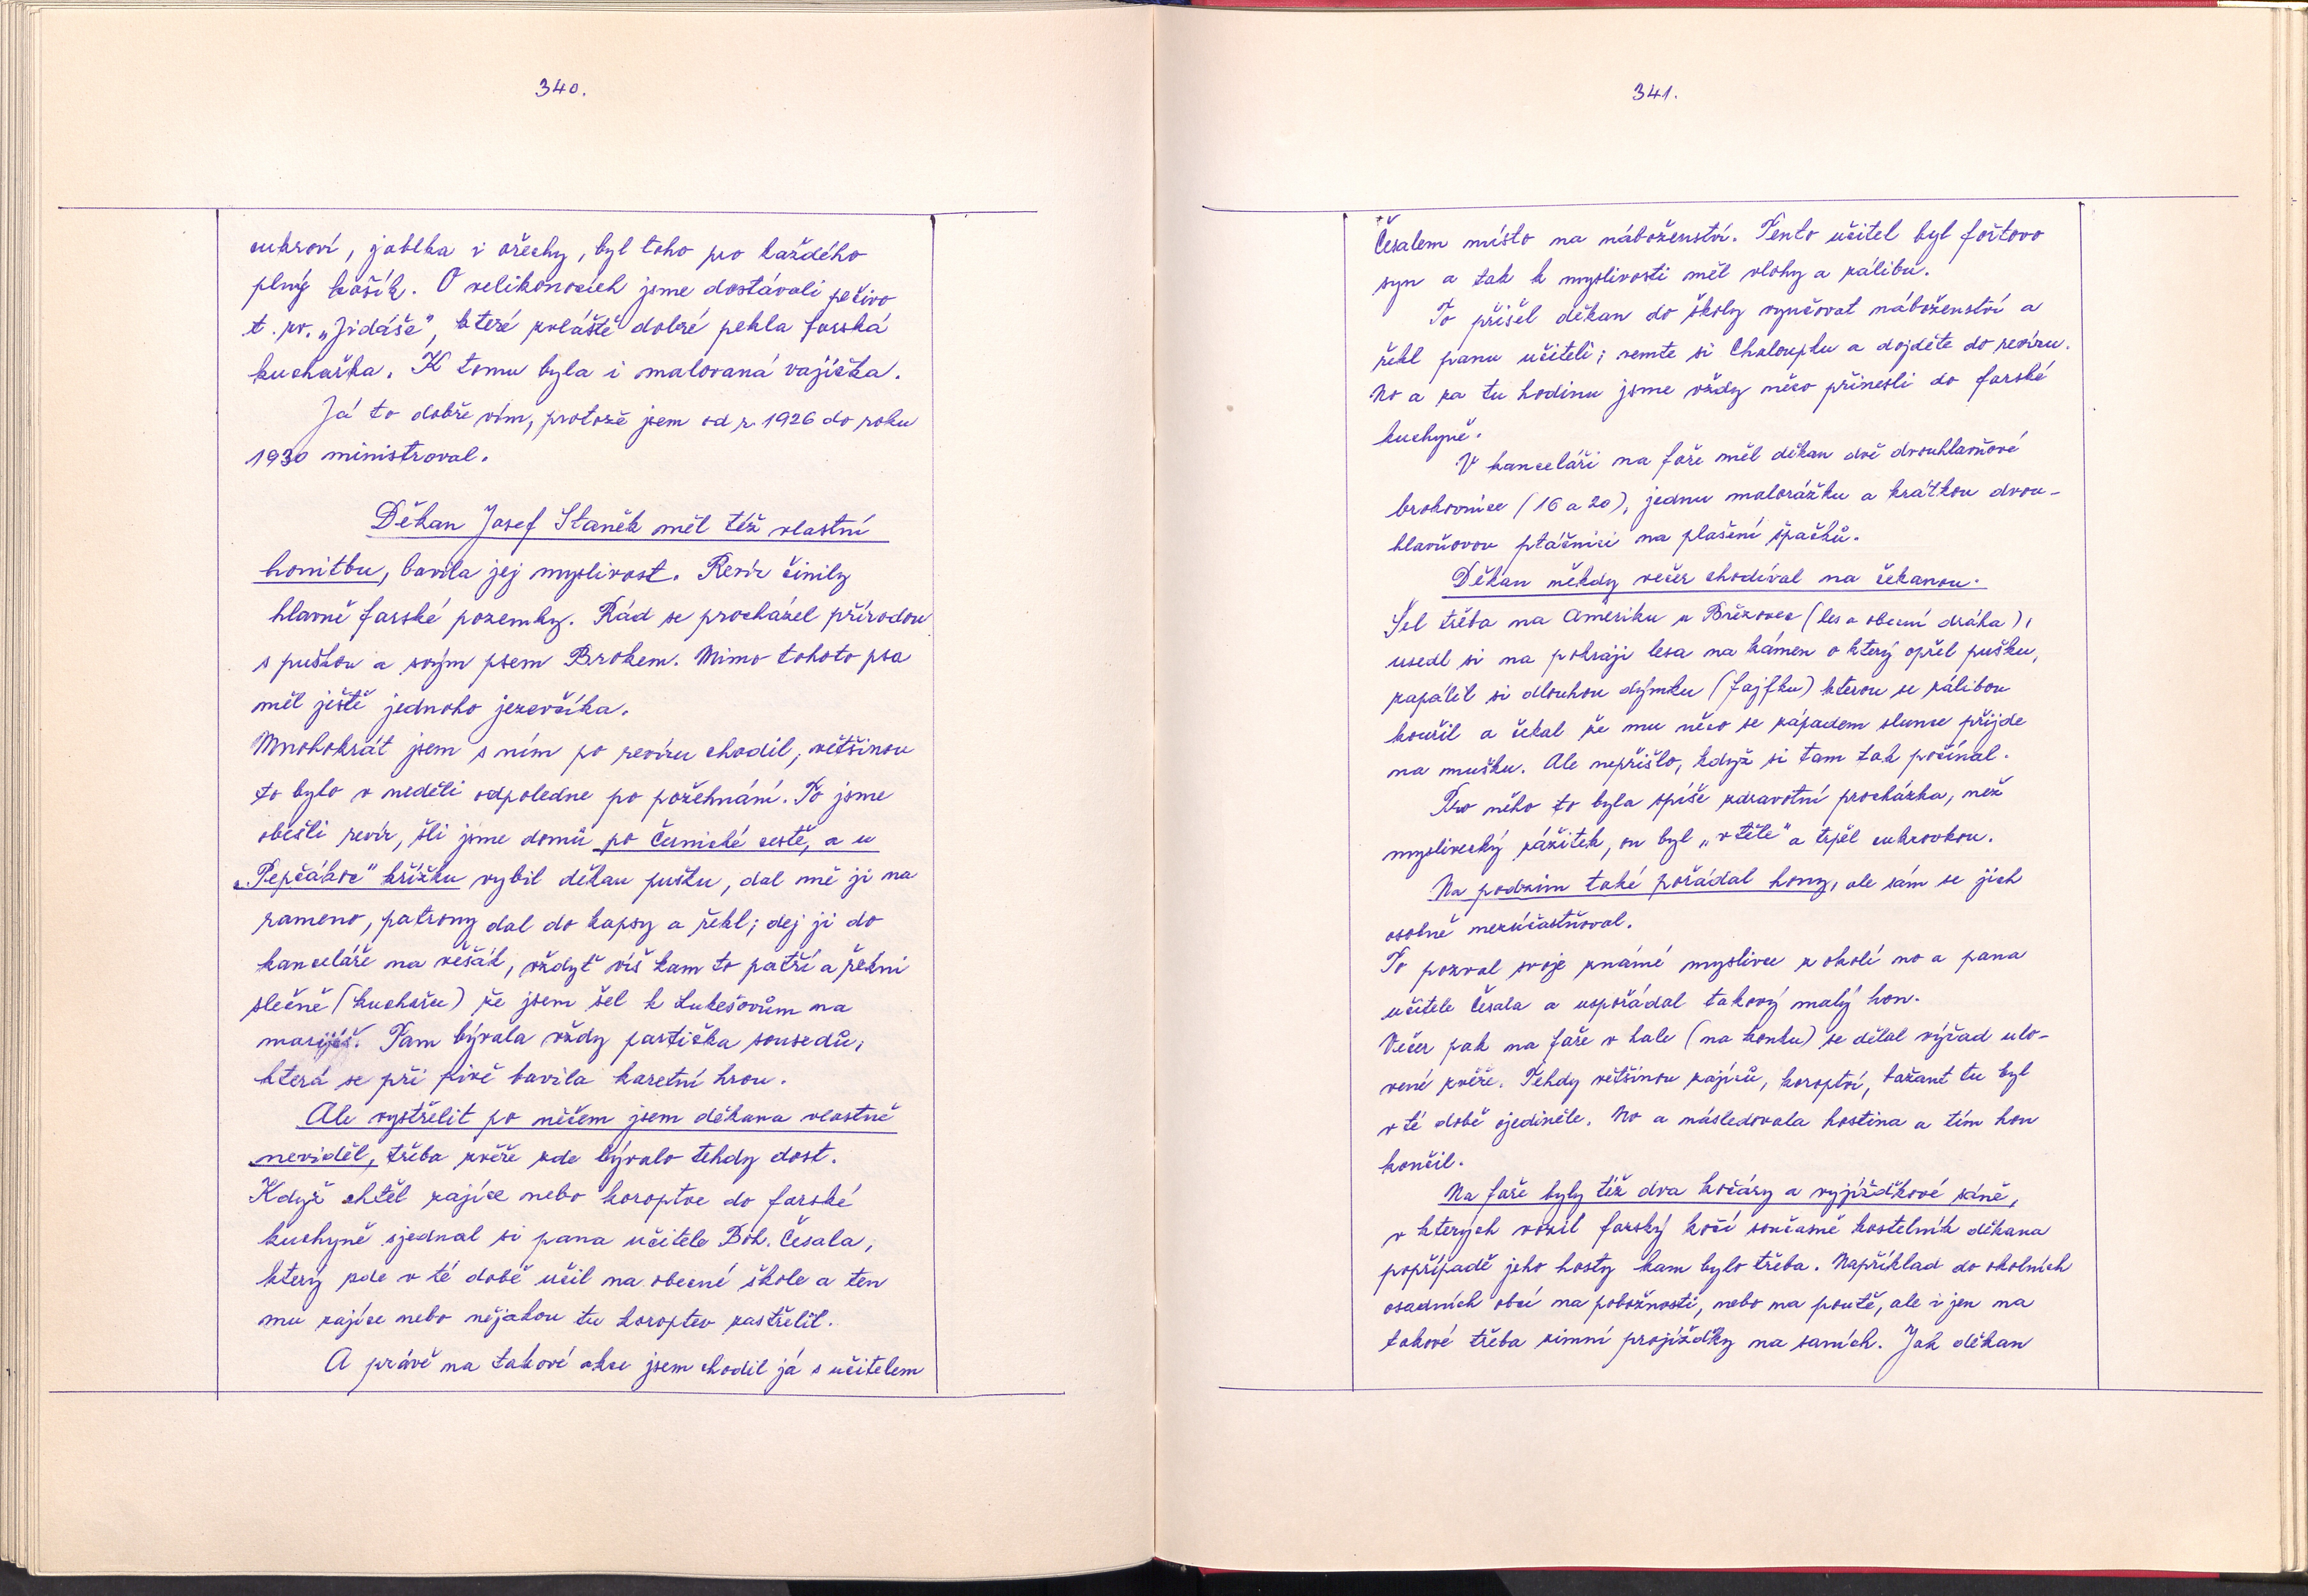 340.
cukroví, jablka i ořechy, byl toho pro každého
plný košík. O velikonocích jsme dostávali pečivo
t. zv. „Jidáše", které zvláště dobré pekla farská
kuchařka. K tomu byla i malovaná vajíčka.
Já to dobře vím, protože jsem od r. 1926 do roku
1930 ministroval.
Děkan Josef Staněk měl též vlastní
honitbu, bavila jej myslivost. Revír činily
hlavně farské pozemky. Rád se procházel přírodou
s puškou a svým psem Brokem. Mimo tohoto psa
měl ještě jednoho jezevčíka.
Mnohokrát jsem s ním po revíru chodil, většinou
to bylo v neděli odpoledne po požehnání. To jsme
obešli revír, šli jsme domů po Černické cestě, a u
„Pepčákoc" křížku vybil děkan pušku, dal mě ji na
rameno, patrony dal do kapsy a řekl; dej ji do
kanceláře na věšák, vždyť víš kam to patří a řekni
slečně (kuchařce) že jsem šel k Lukešovům na
marijáš. Tam bývala vždy partička sousedů,
která se při pivě bavila karetní hrou.
Ale vystřelit po něčem jsem děkana vlastně
neviděl, třeba zvěře zde bývalo tehdy dost.
Když chtěl zajíce nebo koroptve do farské
kuchyně sjednal si pana učitele Boh. Česala,
který zde v té době učil na obecné škole a ten
mu zajíce nebo nějakou tu koroptev zastřelil.
A právě na takové akce jsem chodil já s učitelem
341.
Česalem místo na náboženství. Tento učitel byl foštovo
syn a tak k myslivosti měl vlohy a zálibu.
To přišel děkan do školy vyučovat náboženství a
řekl panu učiteli; vemte si Chaloupku a dojděte do revíru.
No a za tu hodinu jsme vždy něco přinesli do farské
kuchyně.
V kanceláři na faře měl děkan dvě dvouhlavňové
brokovnice (16 a 20), jednu malorážku a krátkou dvou-
hlavňovou ptáčnici na plašení špačků.
Děkan někdy večer chodíval na čekanou.
Šel třeba na Ameriku u Březovec (les a obecní dráha),
usedl si na pokraji lesa na kámen o který opřel pušku,
zapálil si dlouhou dýmku (fajfku) kterou se zálibou
kouřil a čekal že mu něco se západem slunce přijde
na mušku. Ale nepřišlo, když si tam tak počínal.
Pro něho to byla spíše zdravotní procházka, než
myslivecký zážitek, on byl „v těle" a trpěl cukrovkou.
Na podzim také pořádal hony, ale sám se jich
osobně nezúčastňoval.
To pozval svoje známé myslivce z okolí no a pana
učitele Česala a uspořádal takový malý hon.
Večer pak na faře v hale (na konku) se dělal výřad ulo-
vené zvěře. Tehdy většinou zajíců, koroptví, bažant tu byl
v té době ojediněle. No a následovala hostina a tím hon
končil.
Na faře byly též dva kočáry a vyjížďkové sáně,
v kterých vozil farský kočí současně kostelník děkana
popřípadě jeho hosty kam bylo třeba. Například do okolních
osadních obcí na pobožnosti, nebo na poutě, ale i jen na
takové třeba zimní projížďky na saních. Jak děkan